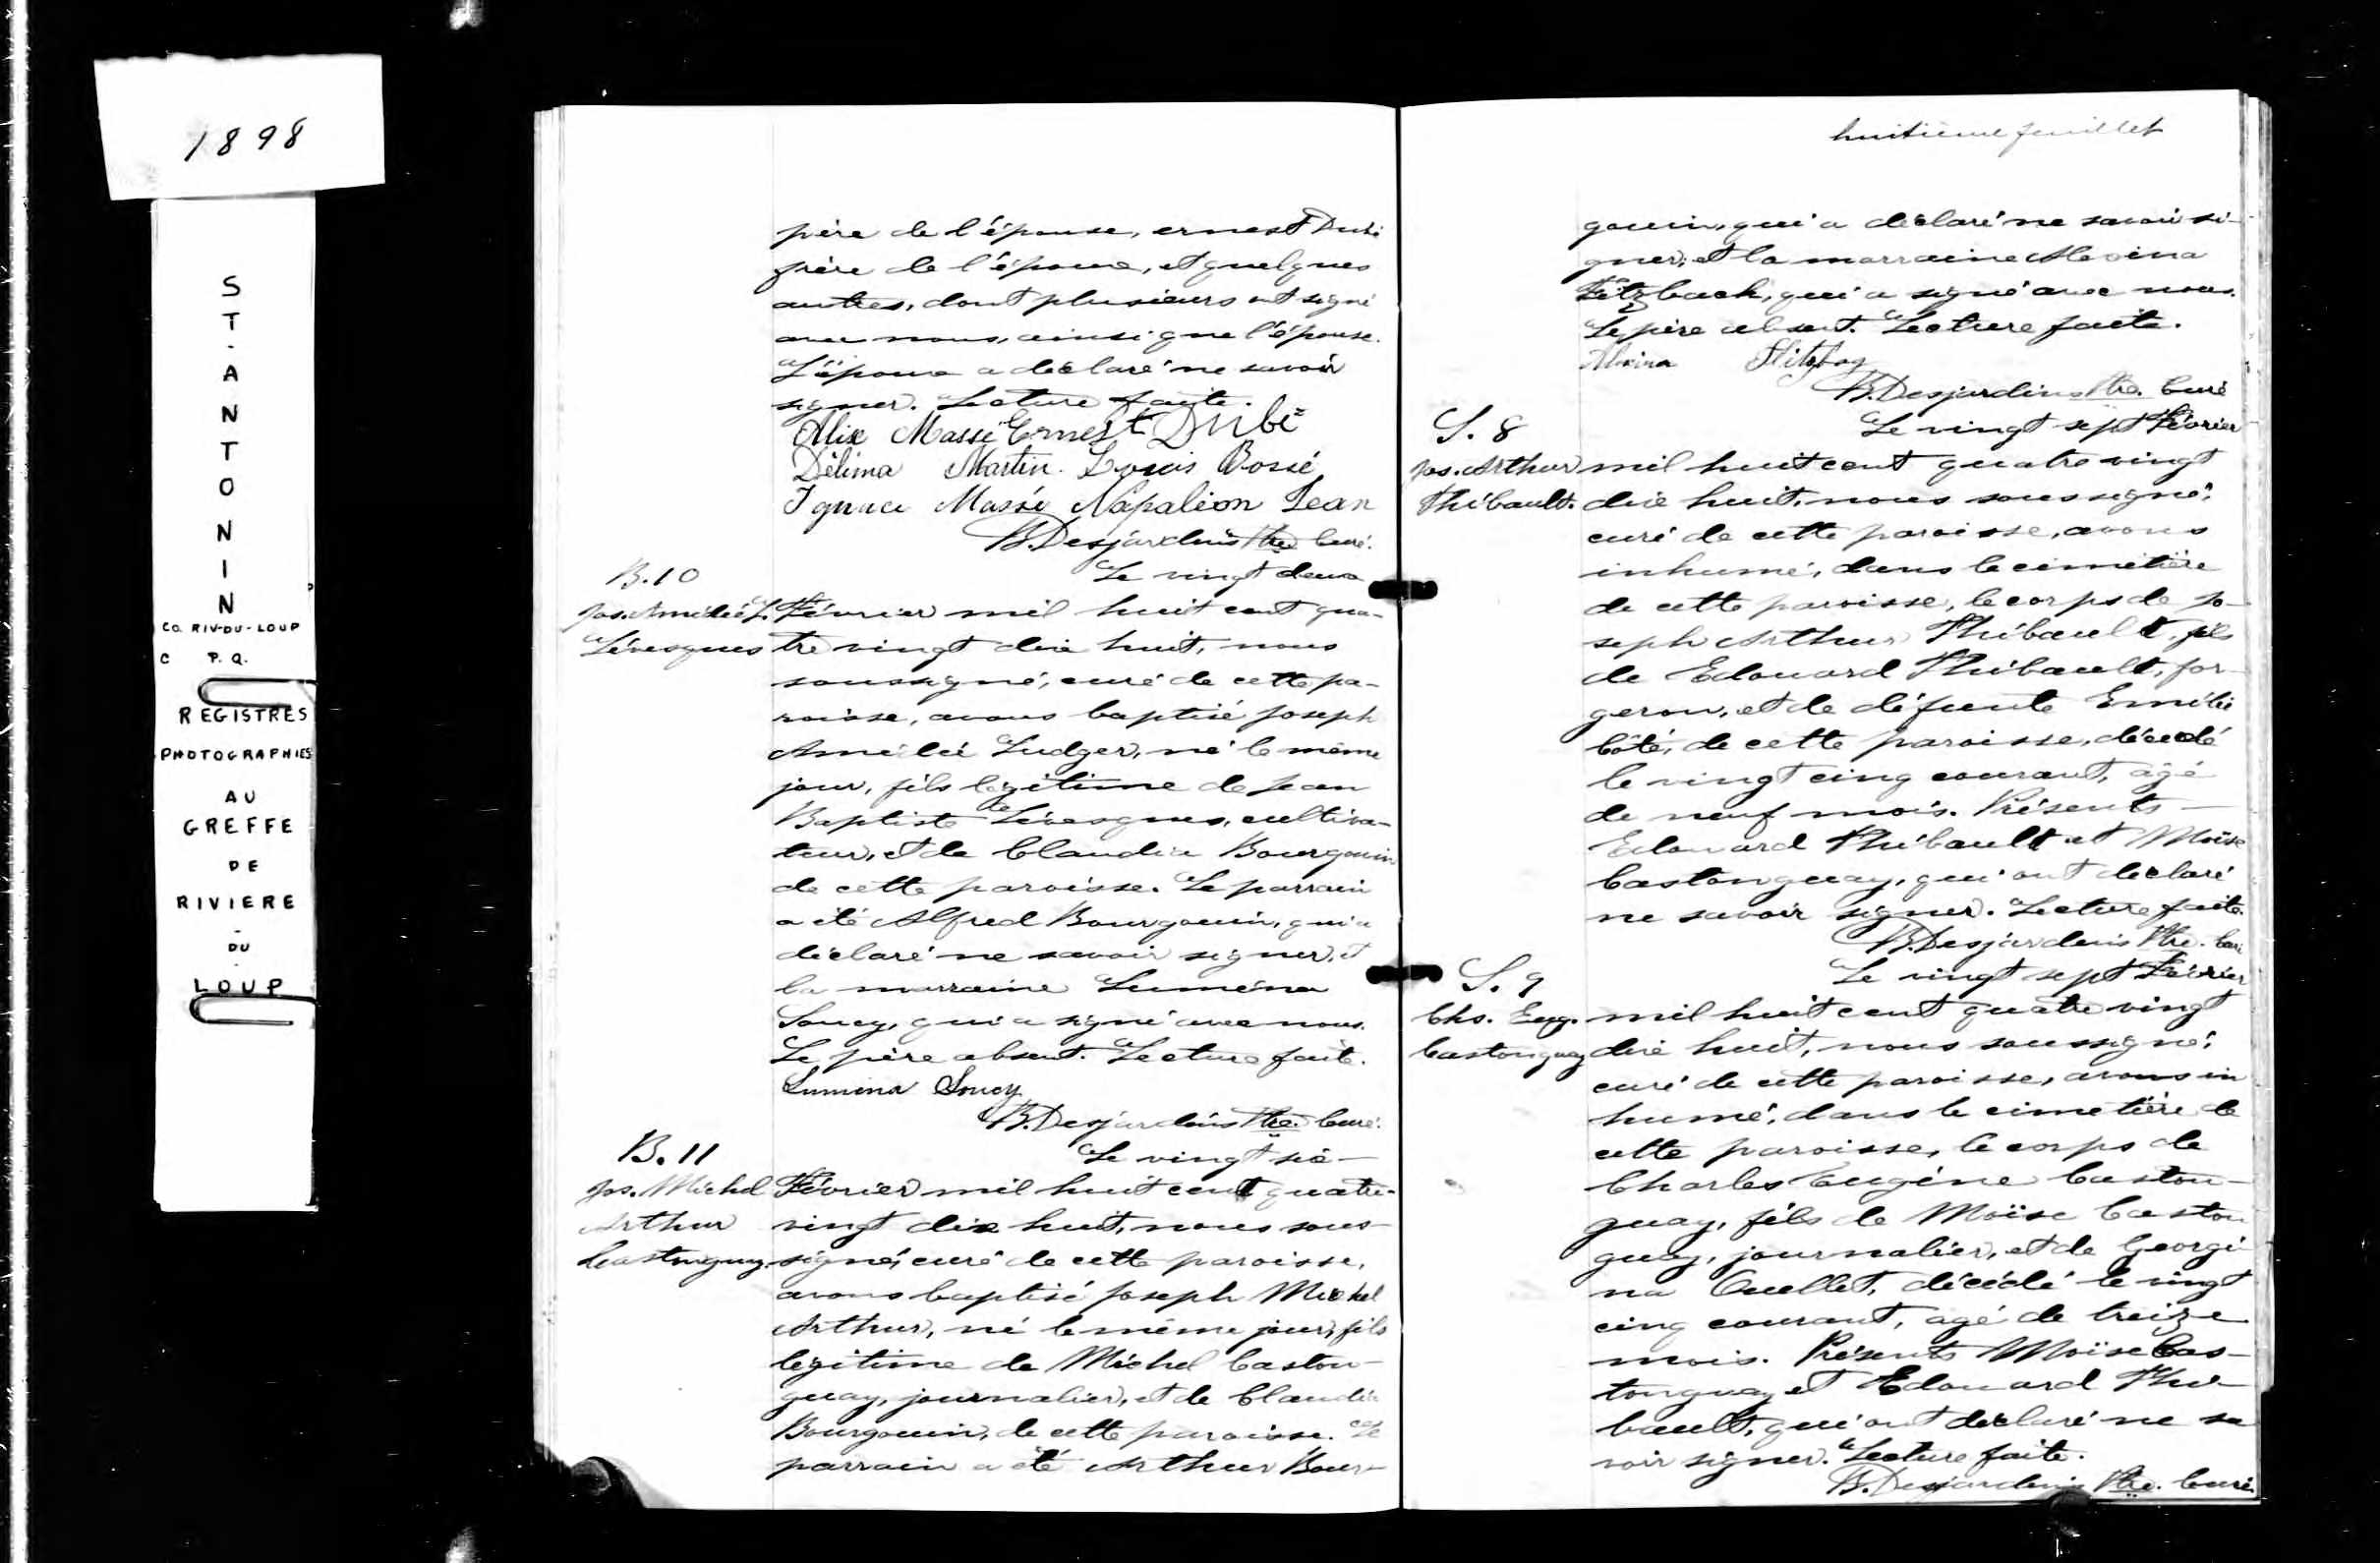 1898
S
T
.
A
N
T
O
N
I
N
CO. RIV-DU-LOUP
C P.Q.
REGISTRES
PHOTOGRAPHIES
AU
GREFFE
DE
RIVIERE
-
DU
-
LOUP
père de l'épouse, ernest Dubé
frère de l'époux, et quelques
autres, dont plusieurs ont signé
avec nous, ainsi que l'épouse.
L'époux a déclaré ne savoir
signer. Lecture faite.
Alix Massé Ernest Dubé
Délima Martin. Louis Bossé
Ignace Massé Napaléon Jean
B. Desjardins Ptre Curé.
B.10
Le vingt deux
Jos. Amédée L. Février mil huit cent qua-
Lévesques tre vingt dix huit, nous
soussigné, curé de cette pa-
roisse, avons baptisé Joseph
Amédée Ludger, né le même
jour, fils légitime de Jean
Baptiste Lévesques, cultiva-
teur, et de Claudia Bourgouin
de cette paroisse. Le parrain
a été Alfred Bourgouin, qui a
déclaré ne savoir signer, et
la marraine Luména
Soucy, qui a signé avec nous.
Le père absent. Lecture faite.
Lumina Soucy
B. Desjardins Ptre. Curé.
B. 11
Le vingt six
Jos. Michel Février mil huit cent quatre-
Arthur vingt dix huit, nous sous-
Castonguay. signé, curé de cette paroisse,
avons baptisé Joseph Michel
Arthur, né le même jour, fils
légitime de Michel Caston-
guay, journalier, et de Claudia
Bourgouin, de cette paroisse. Le
parrain a été Arthur Bour-
huitième feuillet
gouin, qui a déclaré ne savoir si-
gner, et la marraine Alexina
Fitzback, qui a signé avec nous.
Le père absent. Lecture faite.
Alexina
B. Desjardins Ptre. Curé
S. 8
Le vingt sept Février
Jos. Arthur mil huit cent quatre vingt
Thibault. dix huit, nous soussigné,
curé de cette paroisse, avons
inhumé, dans le cimetière
de cette paroisse, le corps de Jo-
seph Arthur Thibault, fils
de Edouard Thibault, for-
geron, et de défunte Emélie
Côté, de cette paroisse, décédé
le vingt cinq courant, âgé
de neuf mois. Présents —
Edouard Thibault et Moïse
Castonguay, qui ont déclaré
ne savoir signer. Lecture faite.
B. Desjardins Ptre. Curé
S. 9
Le vingt sept Février
Chs. Eug. mil huit cent quatre vingt
Castonguay dix huit, nous soussigné,
curé de cette paroisse, avons in
humé, dans le cimetière de
cette paroisse, le corps de
Charles Eugène Caston-
guay, fils de Moïse Caston
guay, journalier, et de Georgi
na Ouellet, décédé le vingt
cinq courant, agé de treize
mois. Présents Moïse Cas-
tonguay et Edouard Thi-
bault, qui ont déclaré ne sa
voir signer. Lecture faite.
B. Desjardins Ptre. Curé.